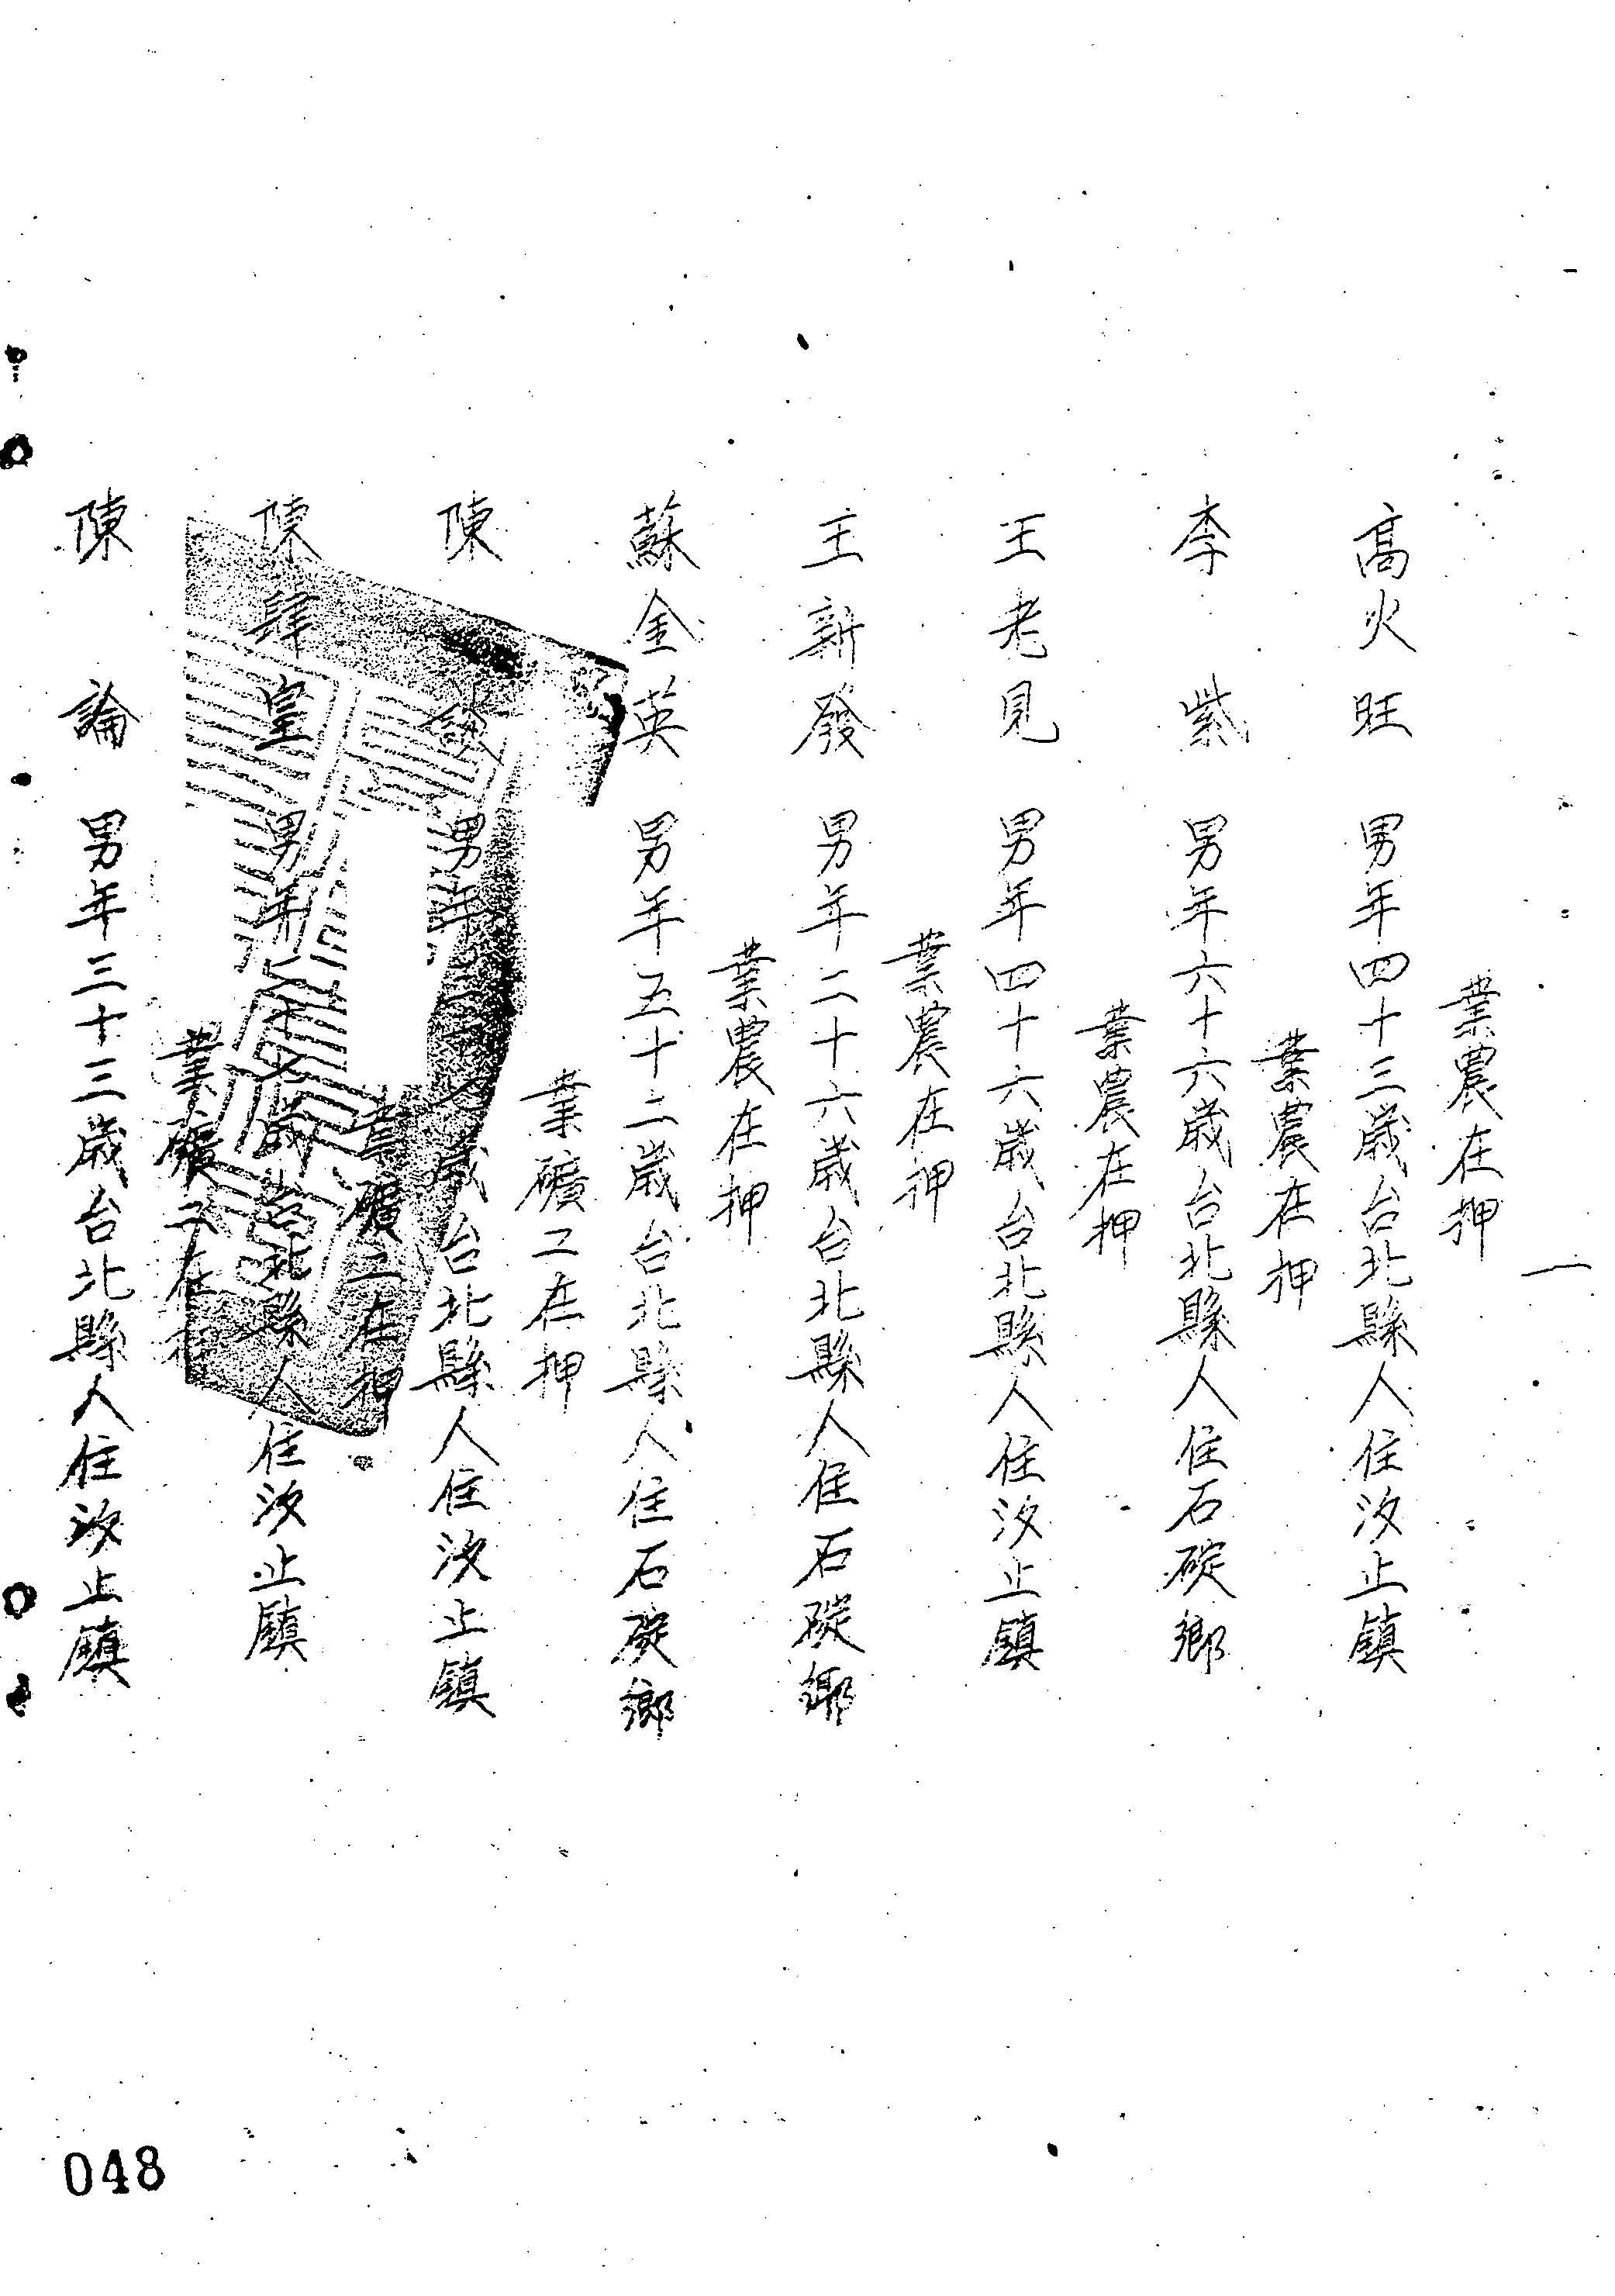 業農在押
高火旺 男年四十三歲台北縣人住汐止鎮
業農在押
李紫 男年六十六歲台北縣人住石碇鄉
業農在押
王老見 男年四十六歲台北縣人住汐止鎮
業農在押
王新發 男年二十六歲台北縣人住石碇鄉
業農在押
蘇金英 男年五十二歲台北縣人住石碇鄉
業礦工在押
陳 男年 歲台北縣人住汐止鎮
業礦工在押
陳肆皇 男年 歲台北縣人住汐止鎮
業礦工在押
陳論 男年三十三歲台北縣人住汐止鎮
一
048